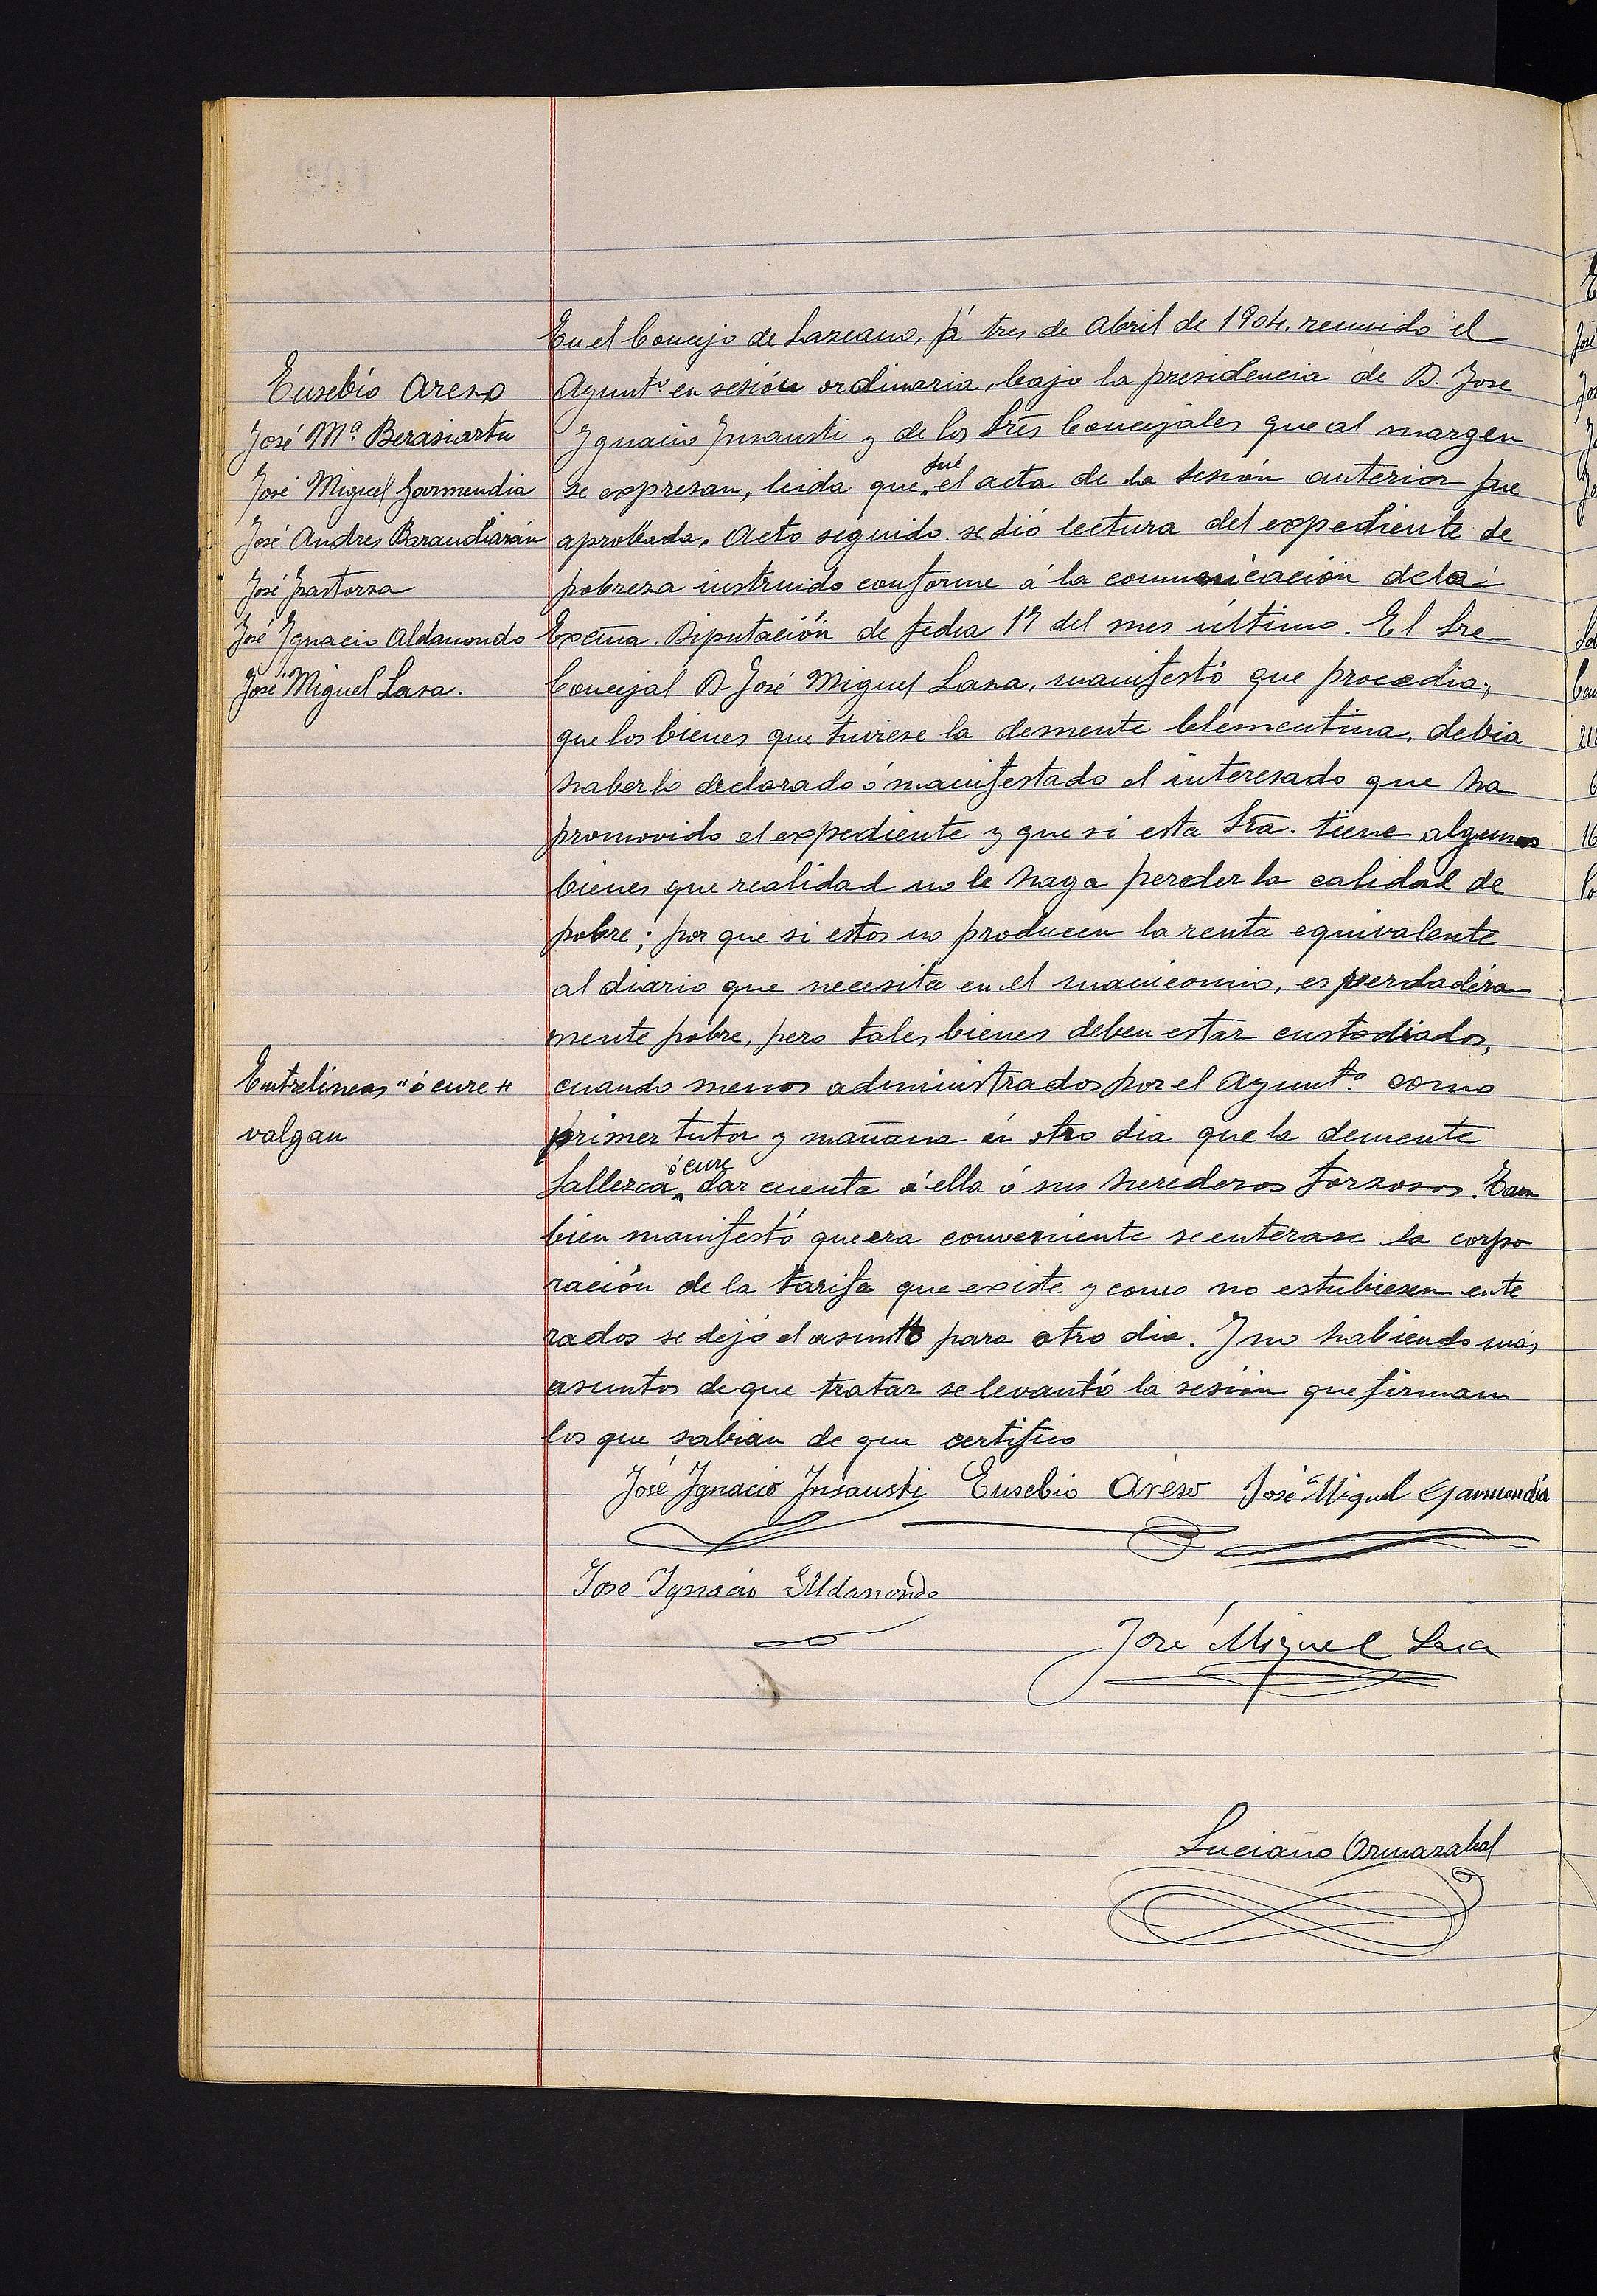 En el Concejo de Lazcano, á tres de Abril de 1904, reunido el
Ayuntº en sesión ordinaria, bajo la presidencia de D. Jose
Ygnacio Insausti y de los Sres Concejales que al margen
se expresan, leida que fué el acta de la sesión anterior fue
aprobada. Acto seguido se dió lectura del expediente de
pobreza instruido conforme á la comunicación de la
Excma. Diputación de fecha 17 del mes último. El Sre
Concejal D José Miguel Lasa, manifestó que procedia;
que los bienes que tuviese la demente Clementina, debia
haberlo declarado ó manifestado el interesado que ha
promovido el expediente y que si esta Sra. tiene algunos
bienes que realidad no le haga perder la calidad de
pobre; por que si estos no producen la renta equivalente
al diario que necesita en el manicomio, es verdadera
mente pobre, pero tales bienes deben estar custodiados,
cuando menos administrados por el Ayuntº como
primer tutor y mañana ú otro dia que la demente
fallezca ó cure dar cuenta á ella ó sus herederos forzosos. Tam
bien manifestó que era conveniente se enterase la corpo
ración de la tarifa que existe y como no estubiesen ente
rados se dejó el asunto para otro dia. Y no habiendo más
asuntos de que tratar se levantó la sesión que firman
los que sabian de que certifico
Eusebio Areso
José Mª Berasiartu
José Miguel Garmendia
José Andres Barandiarán
José Irastorza
José Ygnacio Aldanondo
José Miguel Lasa.
Entrelineas "ó cure"
valgan
José Ygnacio Insausti Eusebio Areso José Miguel Garmendia
Jose Ignacio Aldanondo
José Miguel Lasa
Luciano Ormazabal